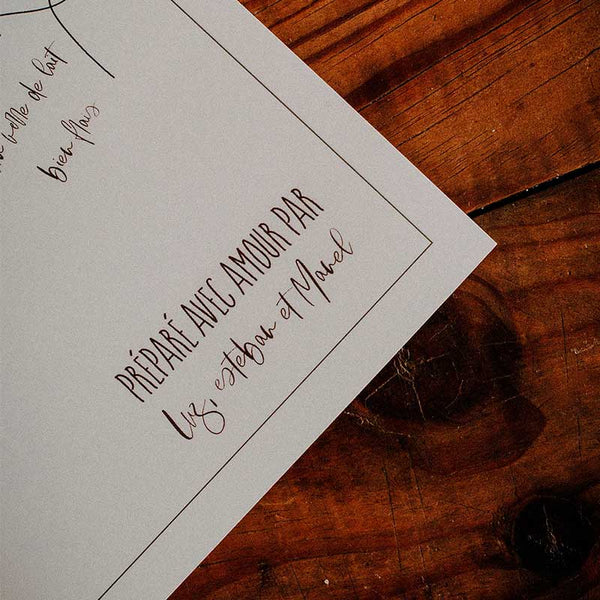 bolle de lait
bien flais
PRÉPARÉ AVEC AMOUR PAR
Luz, esteban et Manel